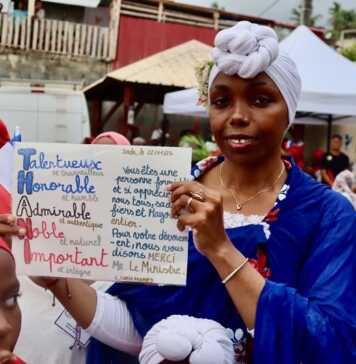 Talentueux
et travailleur
Honorable
et humble
Admirable
et authentique
Noble
et naturel
Important
et intègre
Vous êtes
une personne
et si appréciée
nous tous,
fiers et
entière.
Pour votre dévouem
-ent, nous vous
disons MERCI
Mr. Le Ministre.